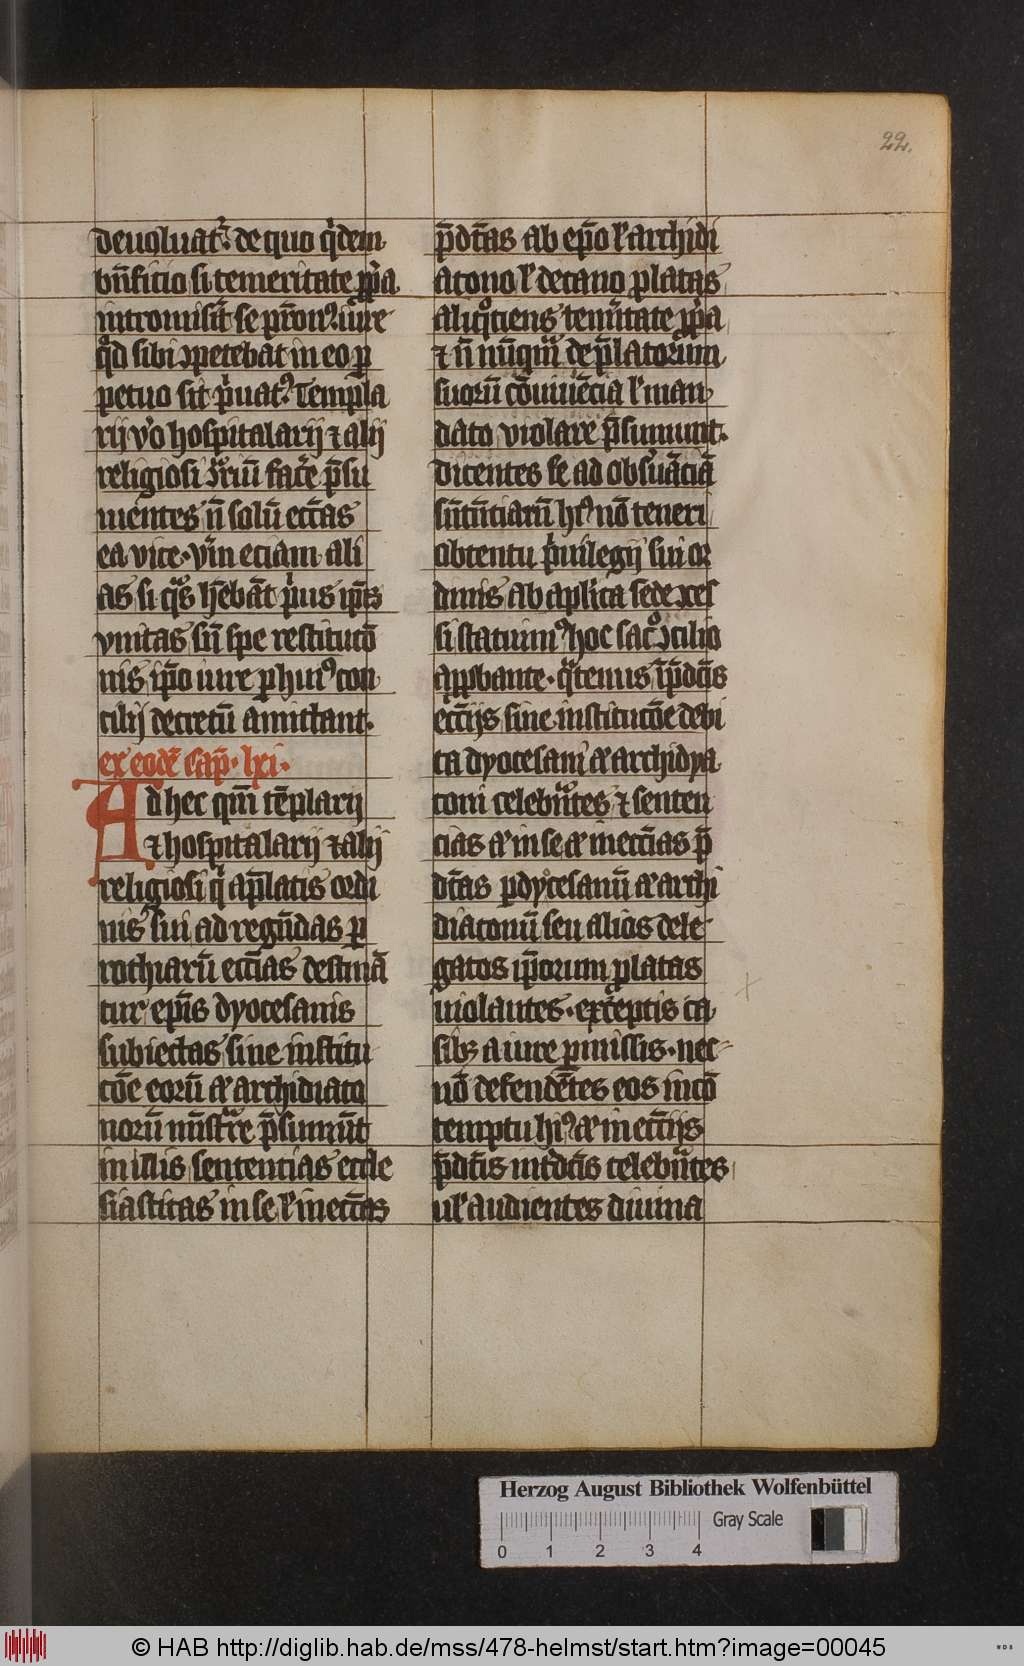 22.
deuoluat᷒. de quo q̇dem
bn̄ficio si temeritate ꝓp̱a
intromis͛it se pr̄on᷒ iure
qd̊ sibi ꝯpetebat in eo ꝑ
petuo sit p̍uat᷒. Templa
rij v̊o hospitalarij ⁊ alij
religiosi ꝯ͛riū fac̄e p̄su
mentes n̄ solū ecc̄as
ea vice. vͬn eciam ali
as si q̊s hēbāt p̍us ip̄is
vnitas sn̄ spe restitutō
nis ip̄o iure ꝑ hui᷒ con
cilij decretū amittant.
ex eodē cap̄. lxi.
Ad hec qm̄ tēplarij
⁊ hospitalarij ⁊ alij
religiosi q̍ a p̄latis ordi
nis sui ad regēdas ꝑ
rochiarū ecc̄ias destinā
tur ep̄is dyocesanis
subiectas sine institu
cōe eorū & archidiaco
norū ministrͣre p̄sumūt
in illis sententias eccle
siasticas in se ł in ecc̄as
p̄dc̄as ab ep̄o ł archidi
acono ł decano prolatas
aliqͦciens tem͛itate ꝓp̍a
⁊ n̄ nūqͣm de p̄latorum
suorū cōniuēcia ł man
dato violare p̄sumunt.
Dicentes se ad obs͛uāciā
sn̄tn̄ciarū hi᷒ nō teneri
obtentu p̍uilegij sui or
dinis ab aplīca sede ꝯces
si statuim᷒ hoc sacͦ ꝯcilio
apꝓbante. qͣtenus ī p̄dc̄is
ecc̄ijs sine institucōe debi
ta dyocesani & archidya
coni celebrͣntes ⁊ senten
cias & in se & in ecc̄ias p̄
dc̄as ꝑ dyocesanū & archi
diaconū seu alios dele
gatos ip̄orum prolatas
uiolantes. exceptis ca
sibꝫ a iure ꝑmissis. nec
nō defendētes eos in cō
temptu hi᷒ & in ecc̄ijs
p̄dc̄is int͛dc̄is celebrͣntes
uł audientes diuina
Herzog August Bibliothek Wolfenbüttel
Gray Scale
0 1 2 3 4
© HAB http://diglib.hab.de/mss/478-helmst/start.htm?image=00045